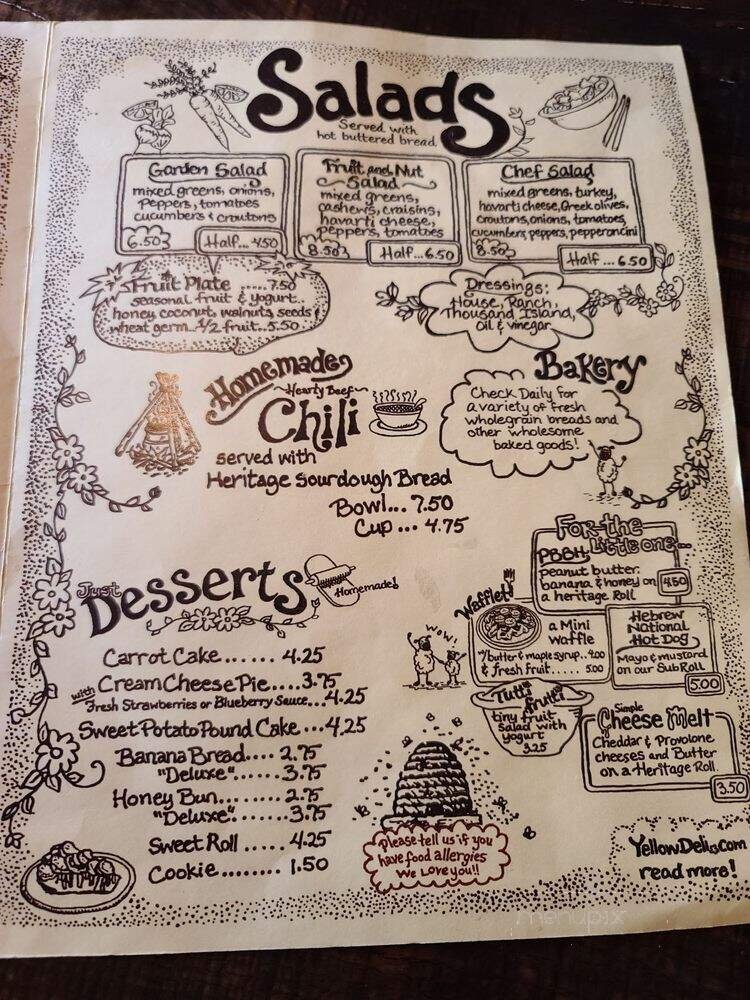 Salads
Served with
hot buttered bread
Garden Salad
mixed greens, onions,
Peppers, tomatoes
cucumbers & croutons
6.50
Half... 4.50
Fruit and Nut
Salad
mixed greens,
cashews, craisins,
havarti cheese,
peppers, tomatoes
8.50
Half...6.50
Chef Salad
mixed greens, turkey,
havarti cheese, Greek olives,
croutons, onions, tomatoes,
cucumbers, peppers, pepperoncini
8.50
Half ... 6.50
Fruit Plate ......7.50
seasonal fruit & yogurt..
honey, coconut, walnuts, seeds &
wheat germ...1/2 fruit..5.50
Dressings:
House, Ranch,
Thousand Island,
Oil & vinegar
Homemade
Hearty Beef
Chili
served with
Heritage Sourdough Bread
Bowl... 7.50
Cup ... 4.75
Bakery
Check Daily for
a variety of fresh
wholegrain breads and
other wholesome
baked goods!
Just
Desserts
Homemade!
Carrot Cake...... 4.25
Cream Cheese Pie....3.75
with Fresh Strawberries or Blueberry Sauce...4.25
Sweet Potato Pound Cake ...4.25
Banana Bread.... 2.75
"Deluxe"...... 3.75
Honey Bun....... 2.75
"Deluxe"....... 3.75
Sweet Roll ..... 4.25
Cookie........ 1.50
For the
Little one...
PBBH
peanut butter
banana & honey on
a heritage Roll
4.50
Wafflet
a Mini
Waffle
w/butter & maple syrup..4.00
& fresh fruit..... 5.00
Hebrew
National
Hot Dog
Mayo & mustard
on our Sub Roll
5.00
WOW!
Tutti frutti
tiny fruit
Salad with
yogurt
3.25
Simple
Cheese Melt
Cheddar & Provolone
cheeses and Butter
on a Heritage Roll
3.50
Please tell us if you
have food allergies
We Love you!!
YellowDeli.com
read more!
menupix